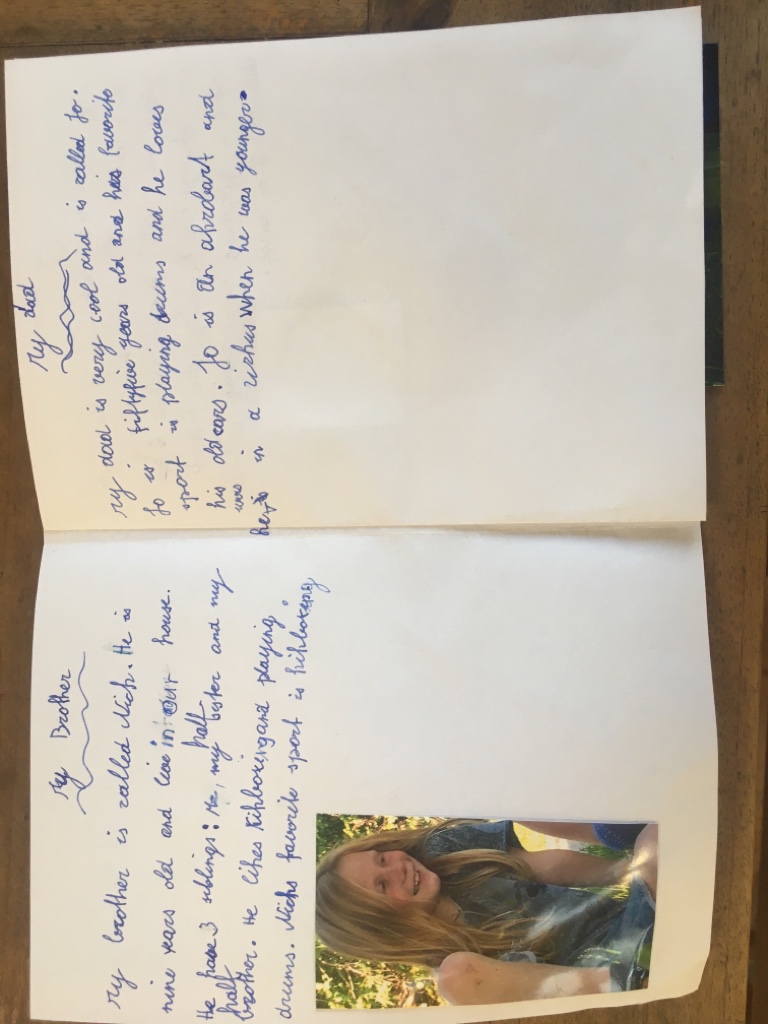 My Brother
My brother is called Nick. He is
nine years old and live in our house.
He have 3 siblings: Me, my half sister and my
half brother. He likes kikboxing and playing
drums. Nicks favorite sport is kikboxing.
My dad
My dad is very cool and is called Jo.
Jo is fiftyfive years old and his favorite
sport is playing drums and he loves
his old cars. Jo is an and
was in a when he was younger.